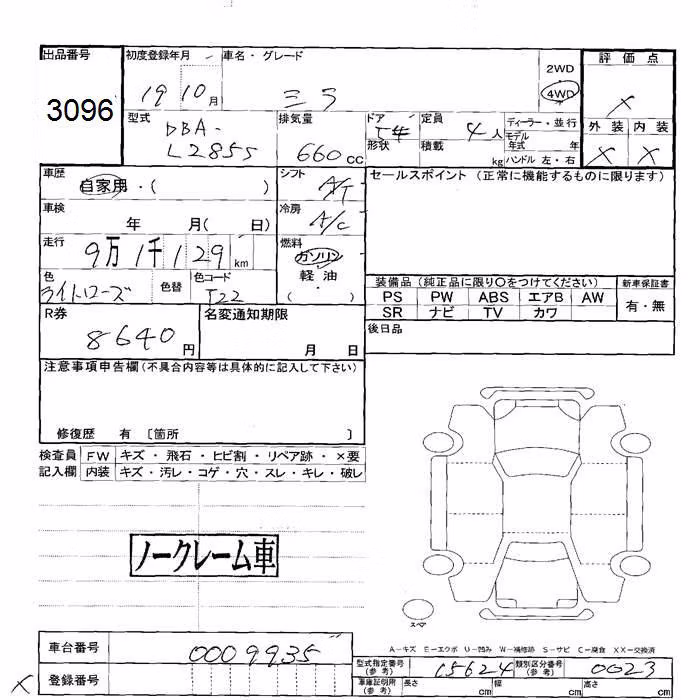 出品番号
3096
初度登録年月
19 10 月
車名・グレード
ミラ
2WD
4WD
評価点
X
外装 内装
X X
型式
DBA-
L285S
排気量
660 cc
ドア
形状
定員 4 人
積載 kg
ディーラー・並行
モデル
年式 年
ハンドル 左・右
車歴
自家用・( )
車検
年 月( 日)
走行
9万1千129 km
色
ライトローズ
色替
色コード
T22
シフト
A/T
冷房
A/C
燃料
ガソリン
軽油・
( )
セールスポイント (正常に機能するものに限ります)
装備品 (純正品に限り○をつけてください)
新車保証書
PS PW ABS エアB AW
有・無
SR ナビ TV カワ
後日品
R券
8640 円
名変通知期限
月 日
注意事項申告欄 (不具合内容等は具体的に記入して下さい)
修復歴 有 〔箇所 〕
検査員 FW キズ・飛石・ヒビ割・リペア跡・×要
記入欄 内装 キズ・汚レ・コゲ・穴・スレ・キレ・破レ
ノークレーム車
スペア
A-キズ E-エクボ U-凹み W-補修跡 S-サビ C-腐食 XX-交換済
車台番号 0009935
登録番号
X
型式指定番号
(参考)
15624
類別区分番号
(参考)
0023
車庫証明用
(参考)
長さ cm 幅 cm 高さ cm